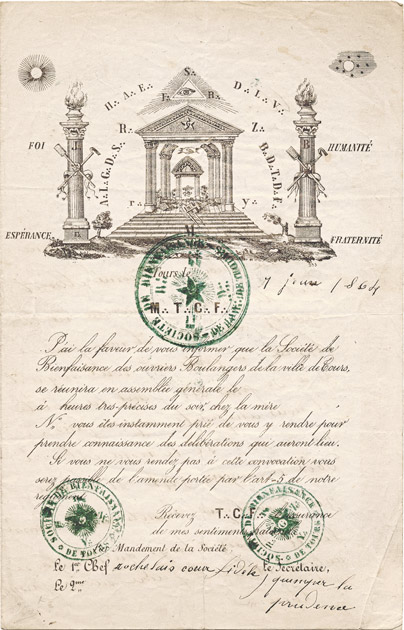 S.
H. A. E. D. L. V.
F. B.
R. Z.
A. L. G. D. S. B. D. T. D. F.
FOI HUMANITÉ
r y.
ESPÉRANCE FRATERNITÉ
Tours le 1864
M. T. C. F.
J'ai la faveur de vous informer que la Société de
Bienfaisance des ouvriers Boulangers de la ville de Tours,
se réunira en assemblée générale le
à heures très-précises du soir, chez la mère
N. vous êtes instamment prié de vous y rendre pour
prendre connaissance des délibérations qui auront lieu.
Si vous ne vous rendez pas à cette convocation vous
serez de l'amende portée par l'art. 5 de notre
Recevez T. C. F.
de mes sentiments
SOCIÉTÉ DE BIENFAISANCE DE TOURS
SOCIÉTÉ DE BIENFAISANCE DE TOURS
Mandement de la Société
Le 1er Chef rochelais coeur fidèle Le Secrétaire,
Le 2me quimper la
prudence